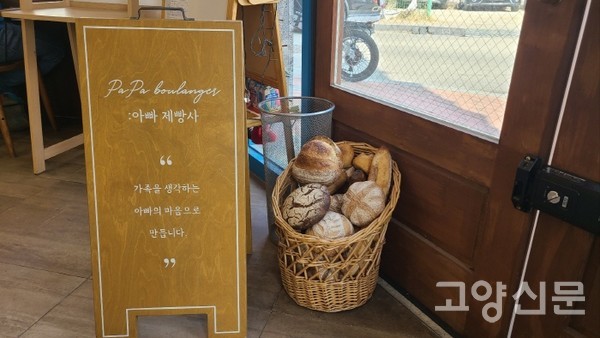 PaPa boulanges
:아빠 제빵사
“
가족을 생각하는
아빠의 마음으로
만듭니다.
”
고양신문